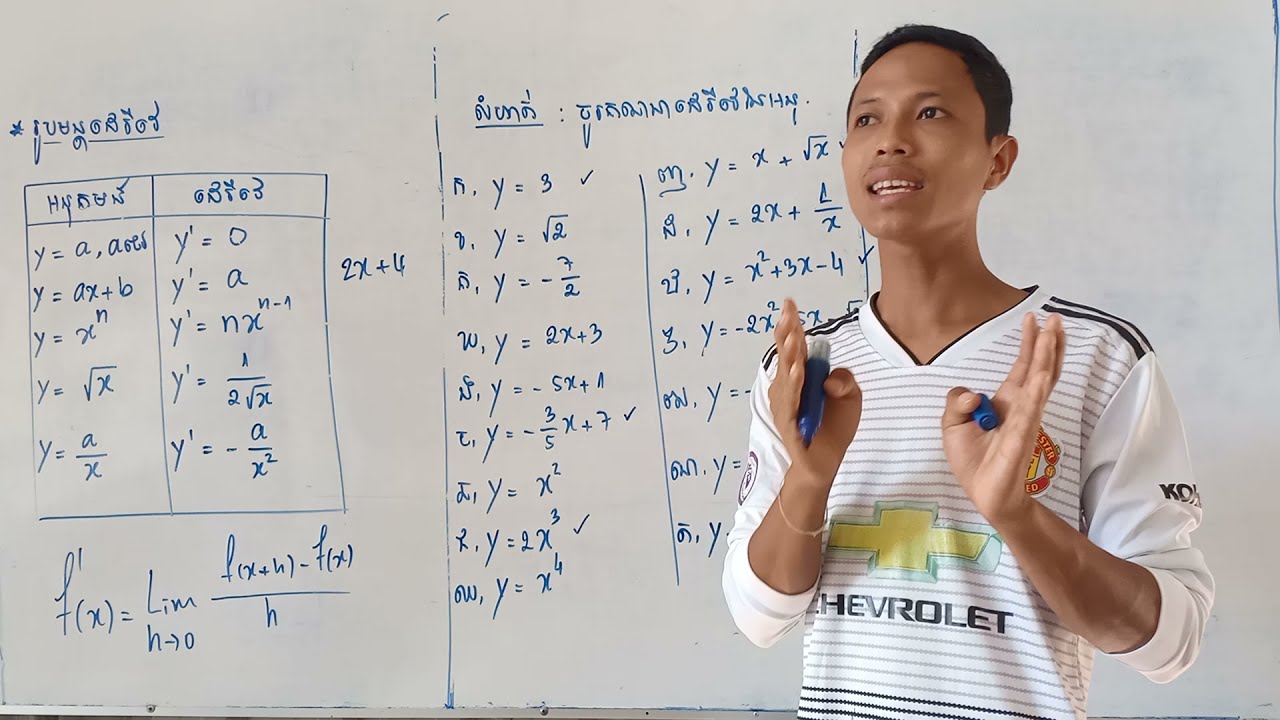 * រូបមន្តដេរីវេ
អនុគមន៍ ដេរីវេ
y = a, a ថេរ y' = 0
y = ax+b y' = a
y = xⁿ y' = nxⁿ⁻¹
y = √x y' = 1/(2√x)
y = a/x y' = -a/x²
2x+4
f'(x) = Lim h→0 (f(x+h) - f(x))/h
លំហាត់ : ចូរគណនាដេរីវេនៃអនុ.
ក, y = 3 ✓
ខ, y = √2
គ, y = -7/2
ឃ, y = 2x+3
ង, y = -5x+1
ច, y = -3/5x+7 ✓
ឆ, y = x²
ជ, y = 2x³ ✓
ឈ, y = x⁴
ញ, y = x + √x
ដ, y = 2x + 1/x
ឋ, y = x²+3x-4 ✓
ឌ, y = -2x² 5x
ឍ, y = -
ណ, y =
ត, y
CHEVROLET
KO